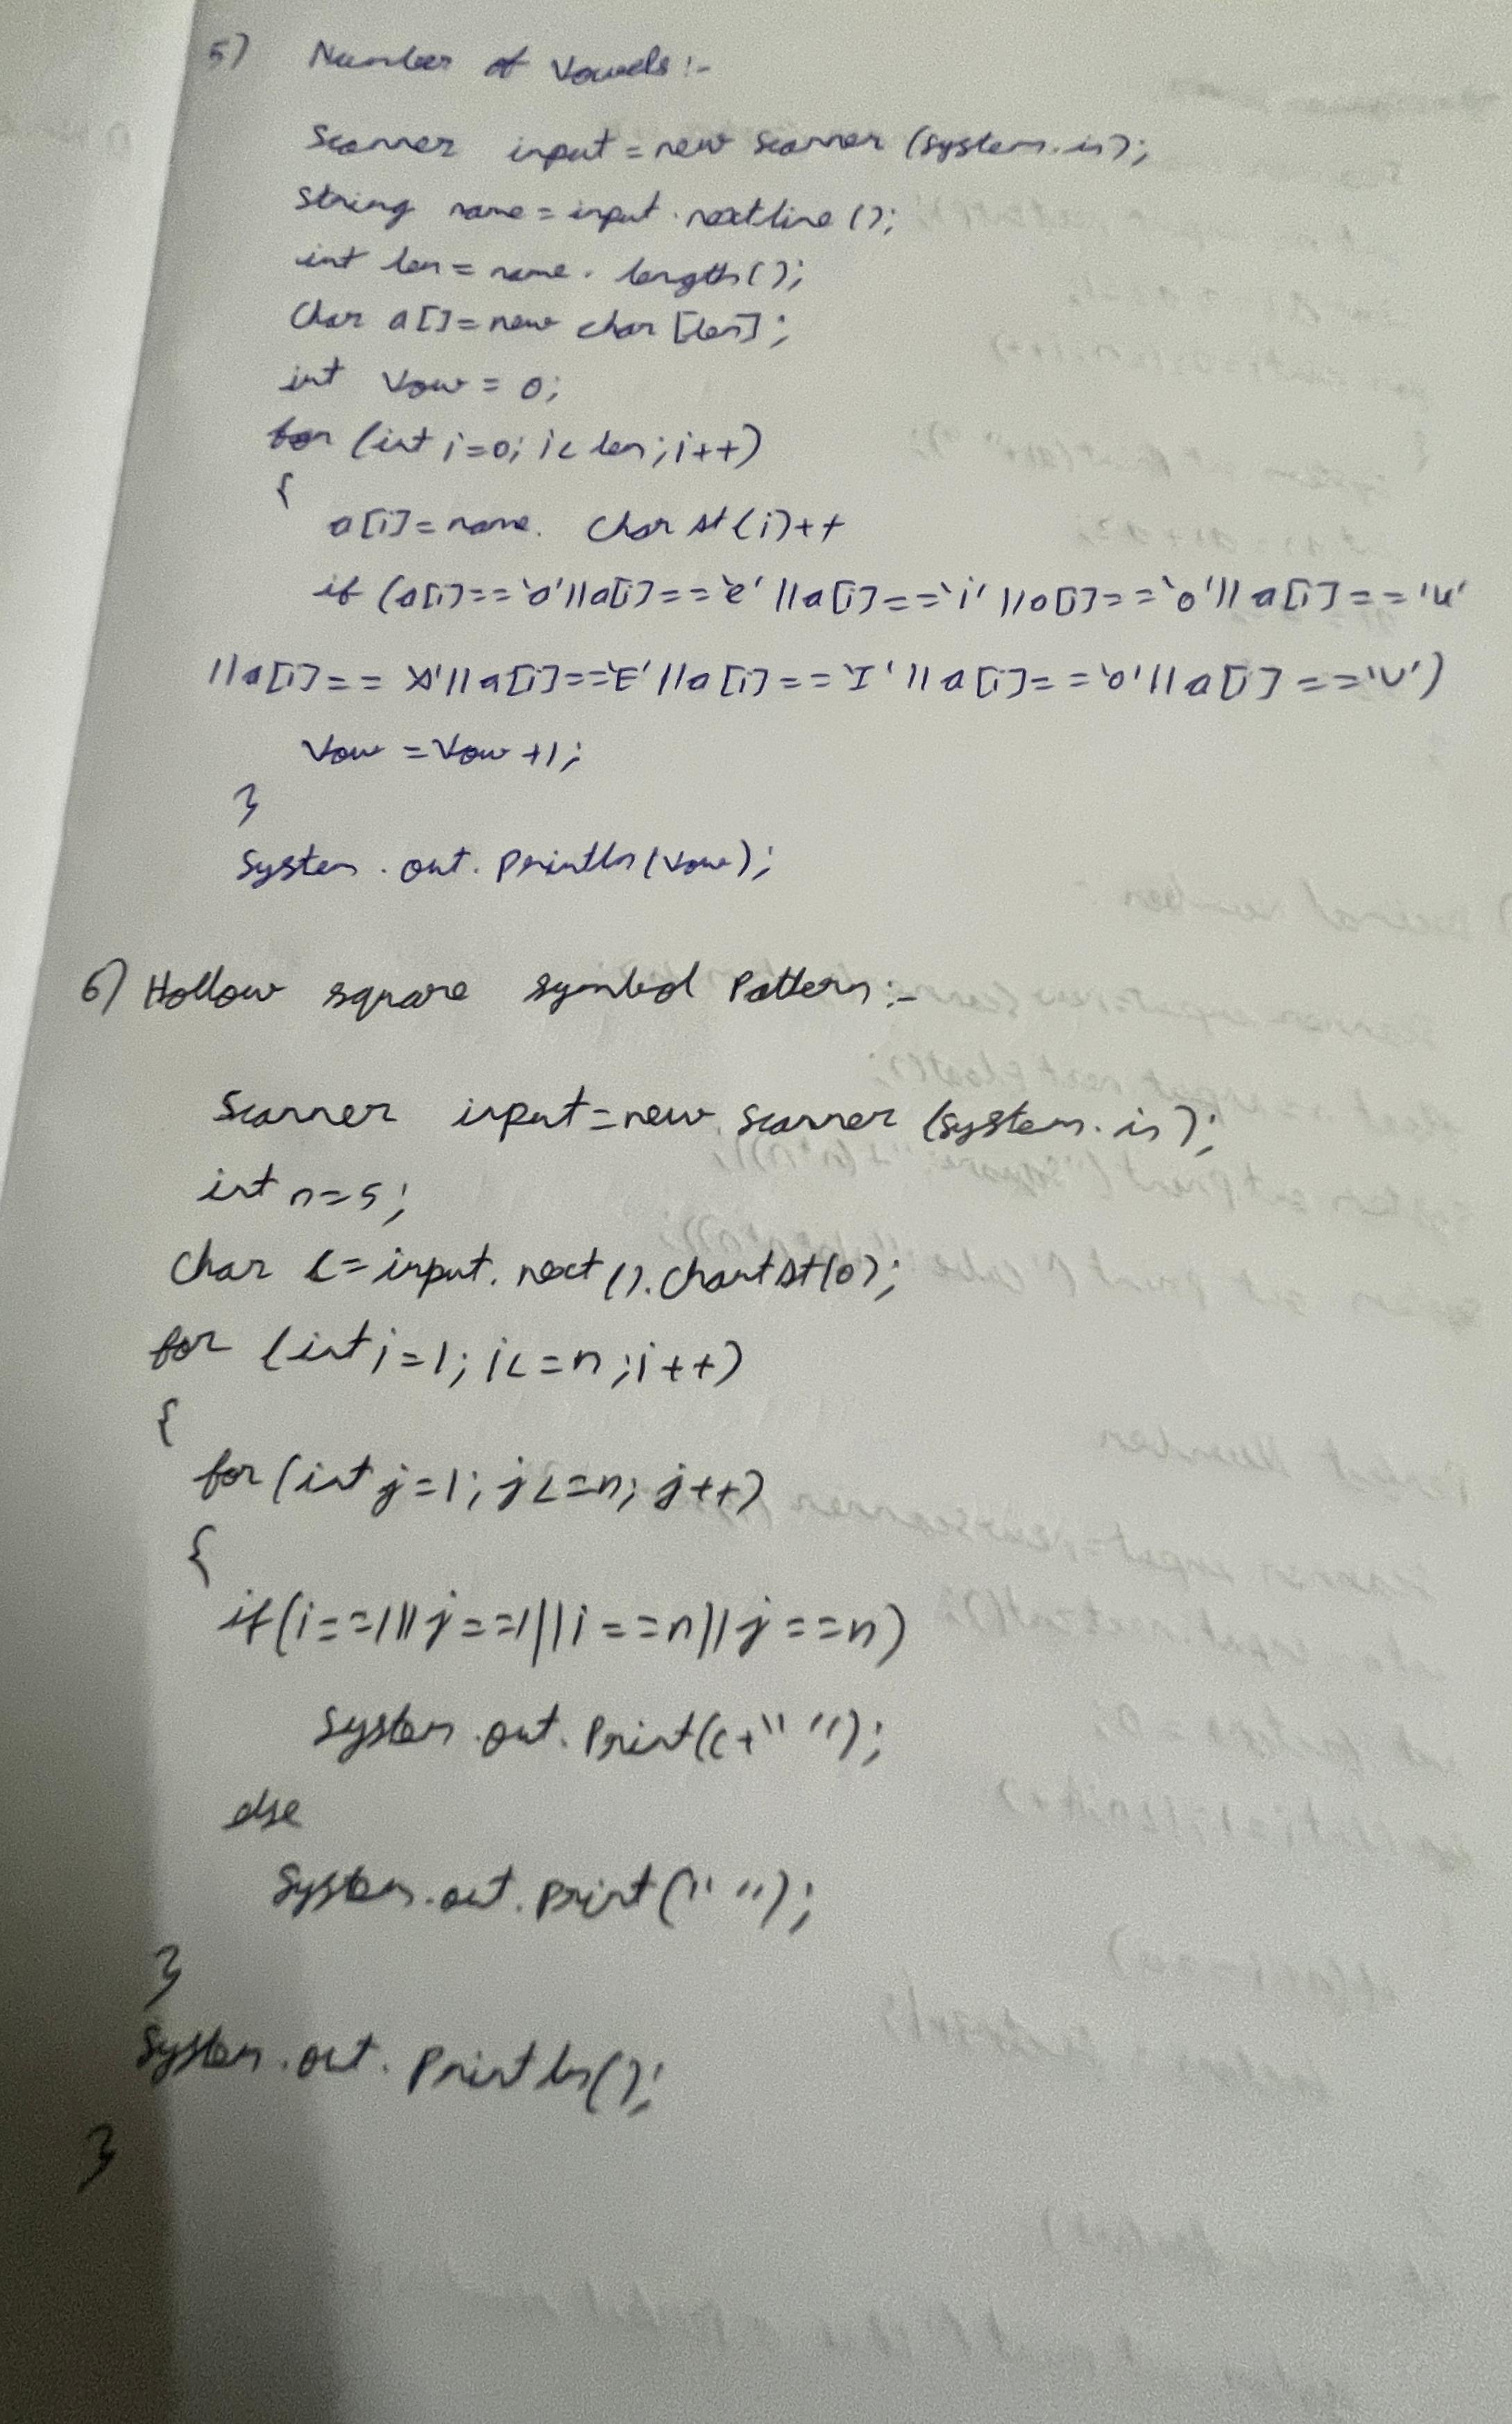 5) Number of Vowels :-
Scanner input = new Scanner (System.in);
String name = input.nextline ();
int len = name.length();
Char a[] = new char [len];
int Vow = 0;
for (int i=0; i< len; i++)
{
a[i] = name. Char At (i)++
if (a[i]=='a'||a[i]=='e'||a[i]=='i'||a[i]=='o'||a[i]=='u'
||a[i]=='A'||a[i]=='E'||a[i]=='I'||a[i]=='O'||a[i]=='U')
Vow = Vow +1;
}
System.out.println(Vow);
6) Hollow square symbol Pattern :-
Scanner input = new Scanner (System.in);
int n=5;
Char c = input.next().ChartAt(0);
for (int i=1; i<=n; i++)
{
for (int j=1; j<=n; j++)
{
if(i==1||j==1||i==n||j==n)
System.out.Print(c+" ");
else
System.out.print(" ");
}
System.out.Println();
}